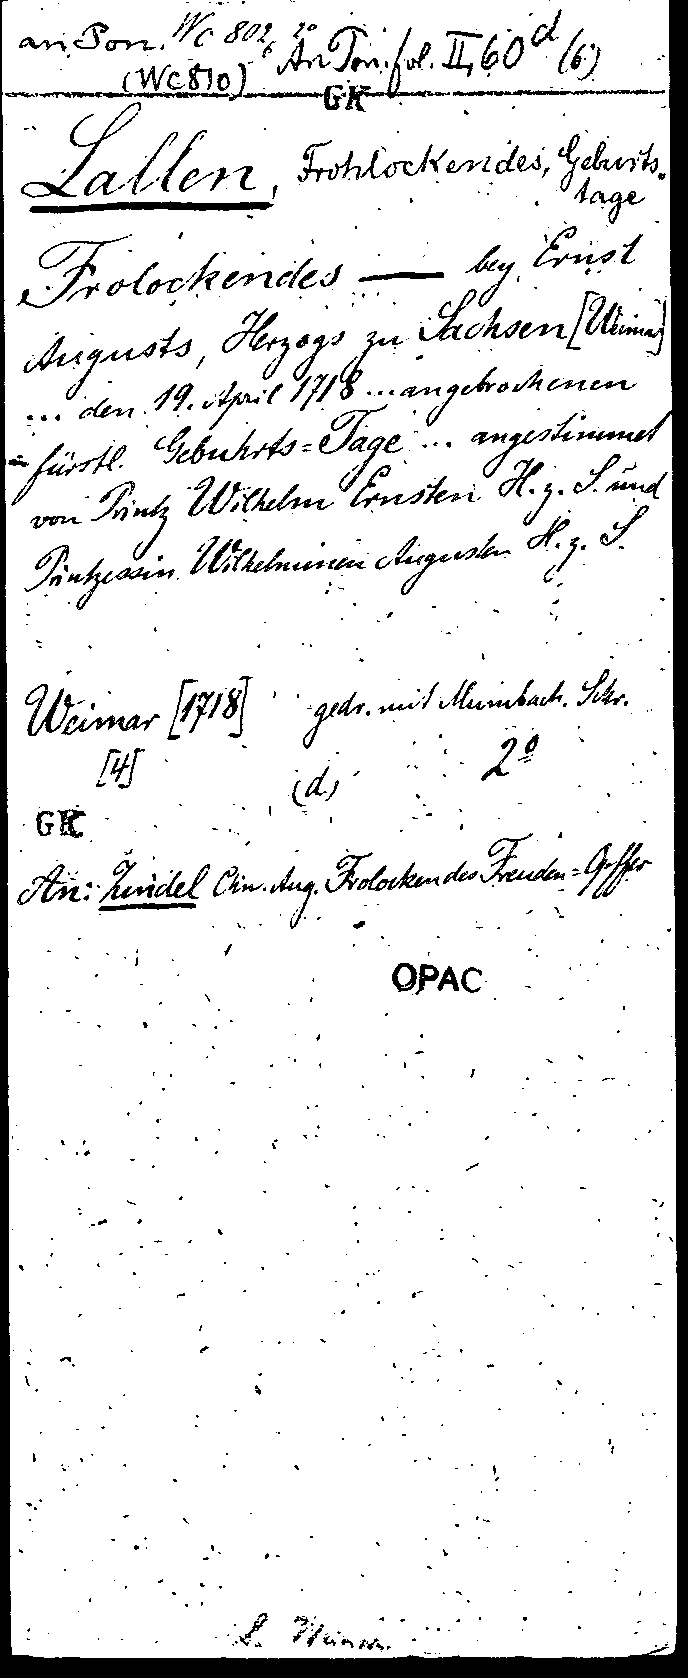 an Pon. Wc 802, 2o An Pon. fol. II, 60 d (6)
(Wc 810)
GK
Lallen, Frohlockendes, Geburts-
tage
Frolockendes — bey Ernst
Augusts, Herzogs zu Sachsen [Weimar]
... den 19. April 1718 ... angebrochenen
fürstl. Gebuhrts=Tage ... angestimmet
von Printz Wilhelm Ernsten H. z. S. und
Printzessin Wilhelminen Augusten H. z. S.
Weimar [1718] gedr. mit Mumbach. Schr.
[4] (d) 2o
GK
An: Zindel Chn. Aug. Frolockendes Freuden=Opffer
OPAC